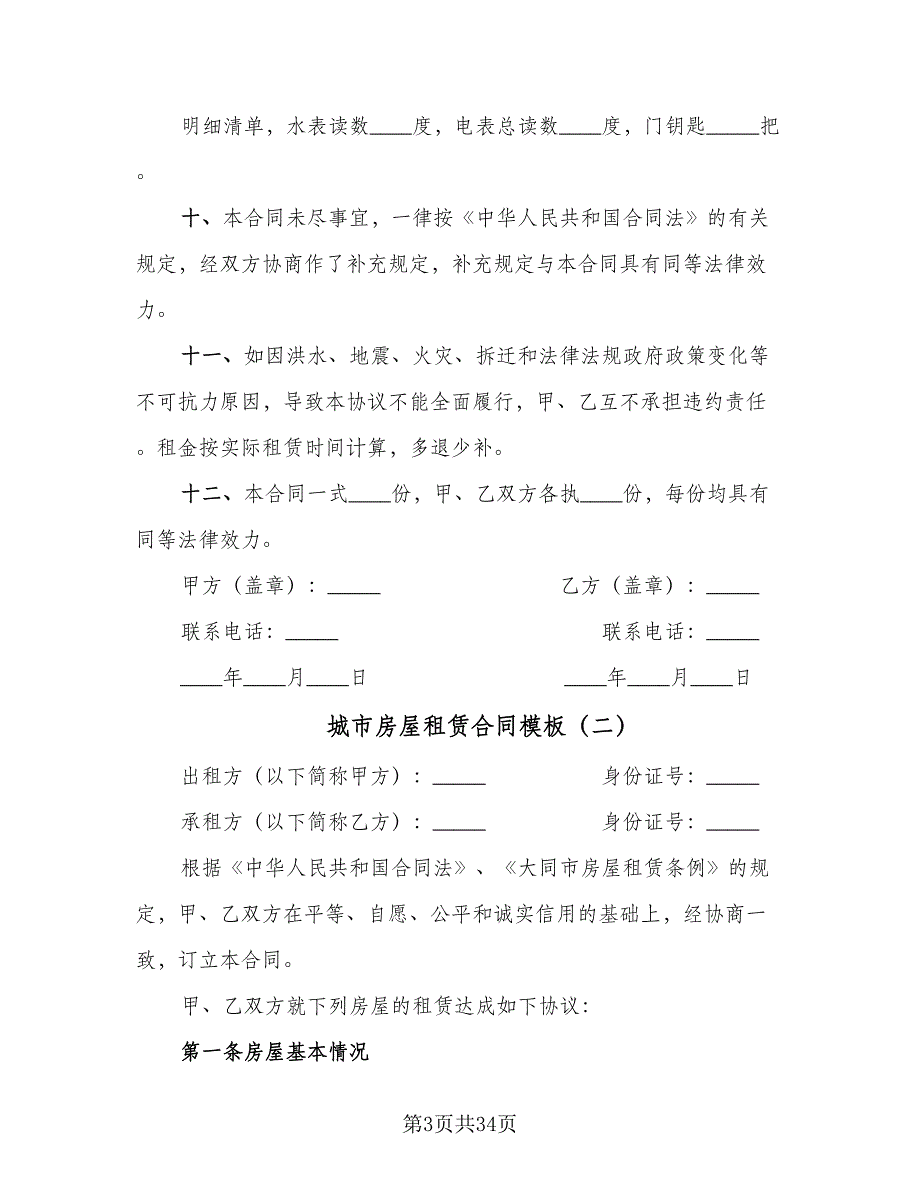 明细清单，水表读数____度，电表总读数____度，门钥匙_____把
。
十、本合同未尽事宜，一律按《中华人民共和国合同法》的有关
规定，经双方协商作了补充规定，补充规定与本合同具有同等法律效
力。
十一、如因洪水、地震、火灾、拆迁和法律法规政府政策变化等
不可抗力原因，导致本协议不能全面履行，甲、乙互不承担违约责任
。租金按实际租赁时间计算，多退少补。
十二、本合同一式____份，甲、乙双方各执____份，每份均具有
同等法律效力。
甲方（盖章）：_____ 乙方（盖章）：_____
联系电话：_____ 联系电话：_____
____年____月____日 ____年____月____日
城市房屋租赁合同模板（二）
出租方（以下简称甲方）：_____ 身份证号：_____
承租方（以下简称乙方）：_____ 身份证号：_____
根据《中华人民共和国合同法》、《大同市房屋租赁条例》的规
定，甲、乙双方在平等、自愿、公平和诚实信用的基础上，经协商一
致，订立本合同。
甲、乙双方就下列房屋的租赁达成如下协议：
第一条房屋基本情况
第3页共34页